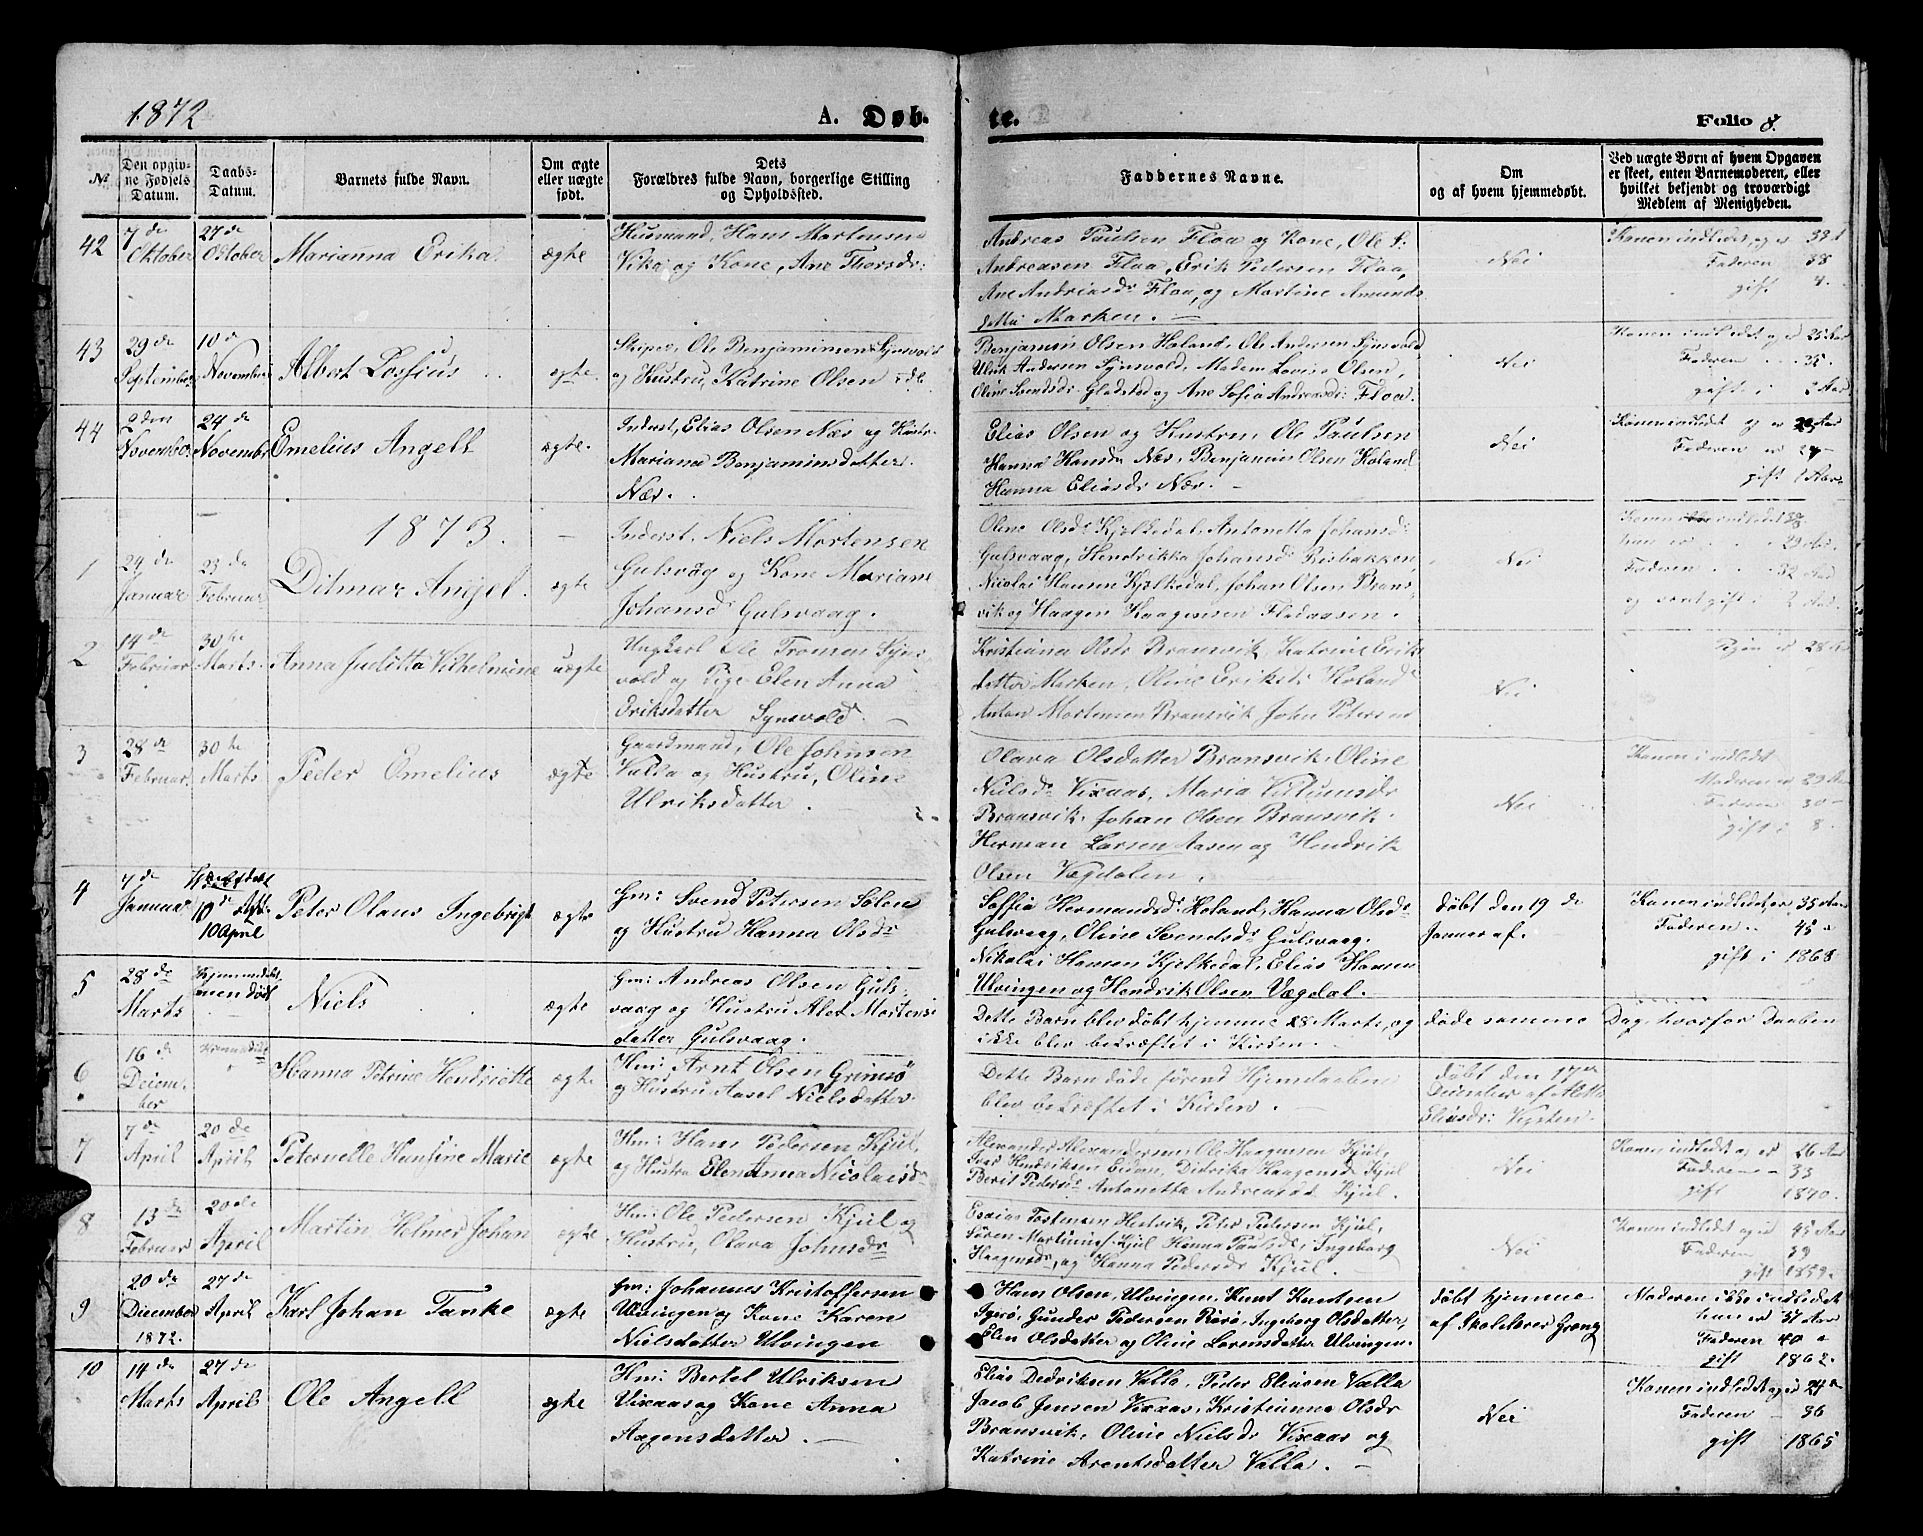 1872
A. Døb-
te.
Folio 8.
№
Den opgiv-
ne Fødsels
Datum.
Daabs-
Datum.
Barnets fulde Navn.
Om ægte
eller uægte
født.
Dets
Forældres fulde Navn, borgerlige Stilling
og Opholdssted.
Faddernes Navne.
Om
og af hvem hjemmedøbt.
Ved uægte Børn af hvem Opgaven
er skeet, enten Barnemoderen, eller
hvilket bekjendt og troværdigt
Medlem af Menigheden.
42
7 de
Oktober
27 de
Oktober
Marianna Erika
ægte
Husmand, Hans Mortensen
Vika og Kone, Ane Thorsdr:
Andreas Paulsen Floa og Kone, Ole P.
Andreasen Floa, Erik Pedersen Floa,
Ane Andreasdr Floa, og Martine Amunds
datter Marken.
Nei
Konen indledet, og er 39
Faderen 38
gift 4.
43
29 de
September
10 de
November
Albert Lossius
egte.
Skiper, Ole Benjaminsen Synsvold
og Hustru, Katrine Olsen
Benjamin Olsen Holand, Ole Andersen Synsvold
Ulrik Andersen Synsvold, Madem Lovise Olsen,
Oline Svendsdr Gladstad og Ane Sofia Andreasdr: Floa.
Nei
Konen indledet og er 25 Aar
Faderen 35
gift i 2 Aar
44
2 den
November
24 de
November
Emelius Angell
ægte.
Inderst, Elias Olsen Næs og Hustr.
Mariana Benjaminsdatter
Næs.
Elias Olsen og Hustru, Ole Paulsen
Hanna Hansdr Næs, Benjamin Olsen Holand
Hanna Eliasdr Næs.
Nei
Konen indledt og er
Faderen er 24
gift 1 Aar
1873.
1
29 de
Januar
23 de
Februar
Ditmar Angel.
ægte
Inderst. Niels Mortensen
Gulsvåg og Kone Mariane
Johansd Gulsvaag.
Oline Olsdr Kjelkedal, Antonetta Johansd:
Gulsvaag, Hendrikka Johansdr Risbakken,
Nicolai Hansen Kjelkedal, Johan Olsen Brans
vik og Haagen Haagensen Fladaasen.
Nei
Konen indledet
han er 29 Aar.
Faderen 32 Aar
og været gift i 2 Aar.
2
14 de
Februar
30 te
Marts
Anna Juditta Vilhelmine
uægte
Ungkarl Ole Tronsen Syns
vold og Pige Elen Anna
Eriksdatter Synsvold.
Kristiana Olsdr Bransvik, Katrine Erik
datter Marken, Oline Eriksdr Holand
Anton Mortensen Bransvik, John Petersen
Nei
Pigen er 28 Aar
3
28 de
Februar
30 te
Marts
Peder Omelius
ægte
Gaardmand, Ole Johnsen
Valda og Hustru, Oline
Ulriksdatter.
Olava Olsdatter Bransvik, Oline
Nielsdr Vixaas, Maria
Bransvik, Johan Olsen Bransvik.
Herman Larsen Aasen og Hendrik
Olsen Vægdalen.
Nei
Konen indledet
Moderen er 29 Aar
Faderen 30
gift i 8.
4
7 de
Januar
10 April
Peter Olaus Ingebrigt
ægte
Gm: Svend Petersen Solen
og Hustru Hanna Olsdr
Soffia Hermandsdr Holand, Hanna Olsdr
Gulsvaag, Oline Svendsdr Gulsvaag.
Nikolai Hansen Kjelkedal, Elias Hansen
Ulvingen og Hendrik Olsen Vægdal.
døbt den 19 de
Januar af.
Konen indledet er 35 Aar
Faderen 45
gift i 1868
5
28 de
Marts
Hjemmedøbt
men død
Niels
ægte
Gm: Andreas Olsen Guls
vaag og Hustru Alet Mortens
datter Gulsvaag.
Dette Barn blev døbt hjemme 28 Marts, og døde samme Dag, hvorfor Daaben
ikke blev bekræftet i Kirken.
6
16 de
Decem-
ber
Hanna Petrine Hendrette
ægte
Hm: Arnt Olsen Grimsø
og Hustru Aasel Nielsdatter.
Dette Barn døde førend Hjemdaaben
blev bekræftet i Kirken.
døbt den 17 de
December af Alette
Eliasdr: Visten.
7
7 de
April
20 de
April
Peternelle Hansine Marie
ægte
Hm: Hans Pedersen Kjul,
og Hustru Elen Anna Nicolaisdr
Alexander Alexandersen, Ole Haagensen Kjul,
Iver Hendriksen Eidem, Didrika Haagensd Kjul
Berit Pedersdr Antonetta Andreasdt Kjul.
Nei
Konen indledt og er 26 Aar
Faderen 33
gift 1870.
8
13 de
Februar
20 de
April
Martin Helmer Johan
ægte
Hm: Ole Pedersen Kjul og
Hustru, Olava Johnsdr
Esaias Tostensen Hestvik, Peter Pedersen Kjul,
Søren Martinus Kjul Hanna Paulsdr, Ingeborg
Haagensdr, og Hanna Pedersdr Kjul.
Nei
Konen indledt og er 45 Aar
Faderen 39
gift 1859.
9
20 de
December
1872.
27 de
April
Karl Johan Tanke
ægte
Gm: Johannes Kristoffersen
Ulvingen og Kone Karen
Nielsdatter Ulvingen
Hans Olsen, Ulvingen, Knut Knutsen
Igerø, Gunder Pedersen Rørø, Ingeborg Olsdatter,
Elen Olsdatter og Oline Lorensdatter Ulvingen.
døbt hjemme
af Skolelærer Grong
Moderen ikke indledet
hun er 37 Aar
Faderen 40
gift 1862.
10
14 de
Marts
27 de
April
Ole Angell
ægte
Hm: Bertel Ulriksen
Vixaas og Kone Anna
Aagensdatter.
Elias Dedriksen Valla, Peder Eliasen Valla
Jacob Jensen Vixaas, Kristianna Olsdr
Bransvik, Oline Nielsdr Vixaas og
Katrine Arentsdatter Valla.
Nei
Konen indledt og er 34
Faderen 36
gift 1865